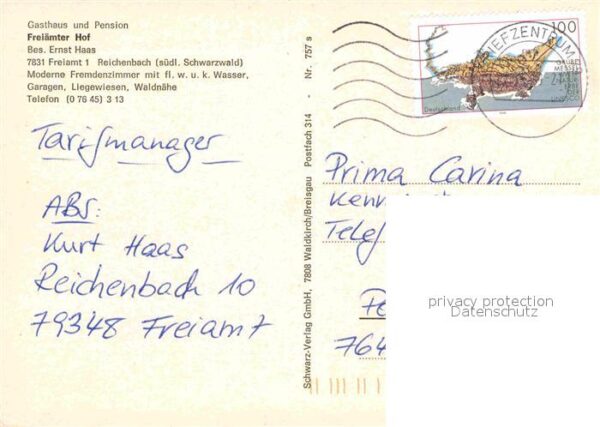 Gasthaus und Pension
Freiämter Hof
Bes. Ernst Haas
7831 Freiamt 1 Reichenbach (südl. Schwarzwald)
Moderne Fremdenzimmer mit fl. w. u. k. Wasser,
Garagen, Liegewiesen, Waldnähe
Telefon (0 76 45) 3 13
Tarifmanager
ABS:
Kurt Haas
Reichenbach 10
79348 Freiamt
Schwarz-Verlag GmbH, 7808 Waldkirch/Breisgau Postfach 314 - Nr. 757 s
100
BRIEFZENTRUM
GRUBE
MESSEL
Deutschland
Prima Carina
Telef
764
privacy protection
Datenschutz